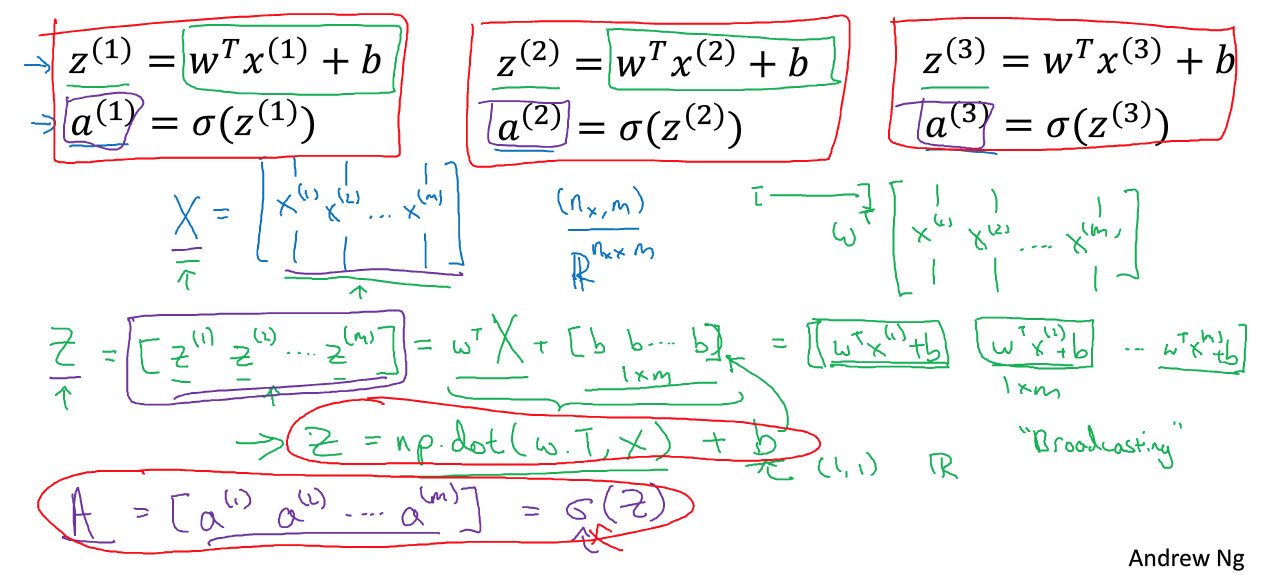 z⁽¹⁾ = wᵀx⁽¹⁾ + b z⁽²⁾ = wᵀx⁽²⁾ + b z⁽³⁾ = wᵀx⁽³⁾ + b
a⁽¹⁾ = σ(z⁽¹⁾) a⁽²⁾ = σ(z⁽²⁾) a⁽³⁾ = σ(z⁽³⁾)
X = [x⁽¹⁾ x⁽²⁾ ... x⁽ᵐ⁾] (nₓ, m) wᵀ [x⁽¹⁾ x⁽²⁾ .... x⁽ᵐ⁾]
ℝ^(nₓ × m)
Z = [z⁽¹⁾ z⁽²⁾ .... z⁽ᵐ⁾] = wᵀX + [b b ... b] = [wᵀx⁽¹⁾+b wᵀx⁽²⁾+b ... wᵀx⁽ᵐ⁾+b]
1×m 1×m
→ Z = np.dot(w.T, X) + b (1,1) ℝ "Broadcasting"
A = [a⁽¹⁾ a⁽²⁾ .... a⁽ᵐ⁾] = σ(Z)
Andrew Ng